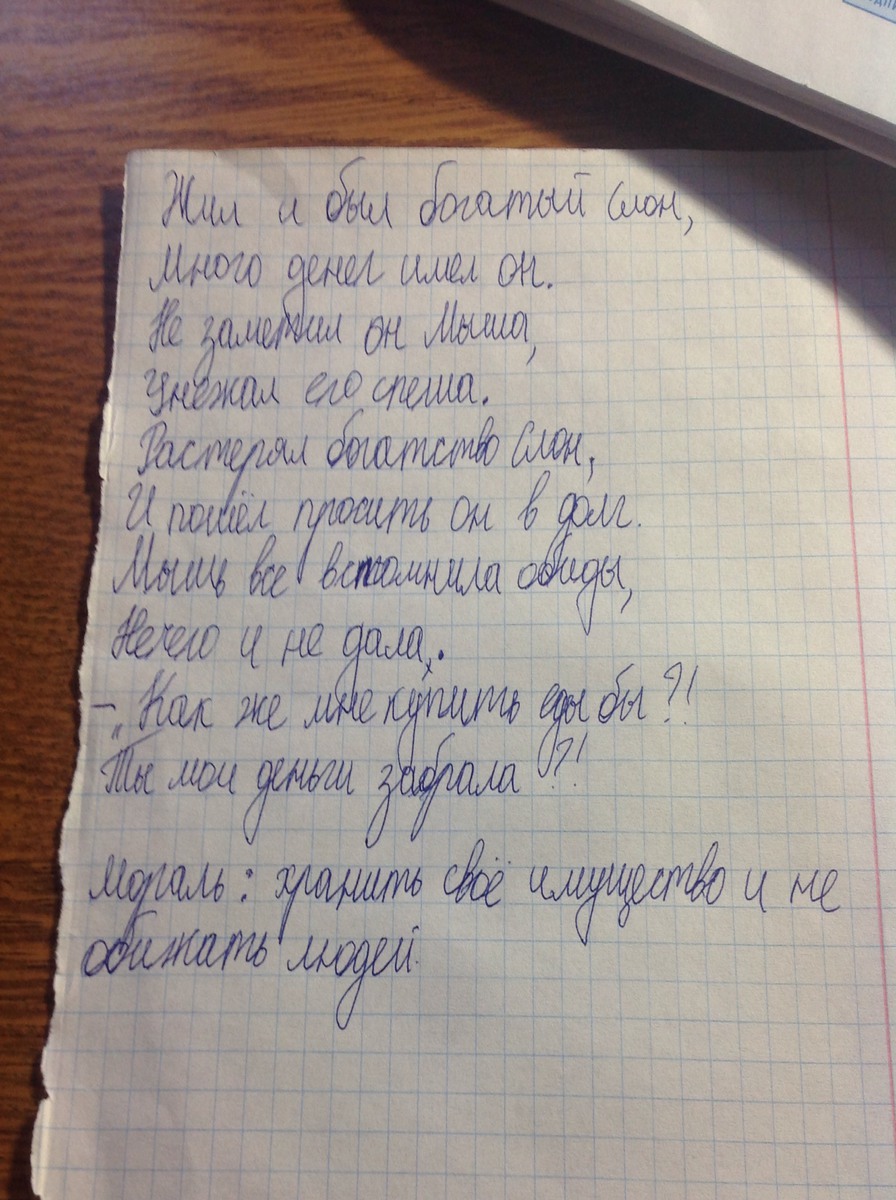 Жил и был богатый Слон,
Много денег имел он.
Не заметил он Мыша,
Унежал его спеша.
Растерял богатство Слон,
И пошёл просить он в долг.
Мышь все вспомнила обиды,
Нечего и не дала.
– „Как же мне купить еды бы?!
Ты мои деньги забрала?!
Мораль: хранить своё имущество и не
обижать людей.